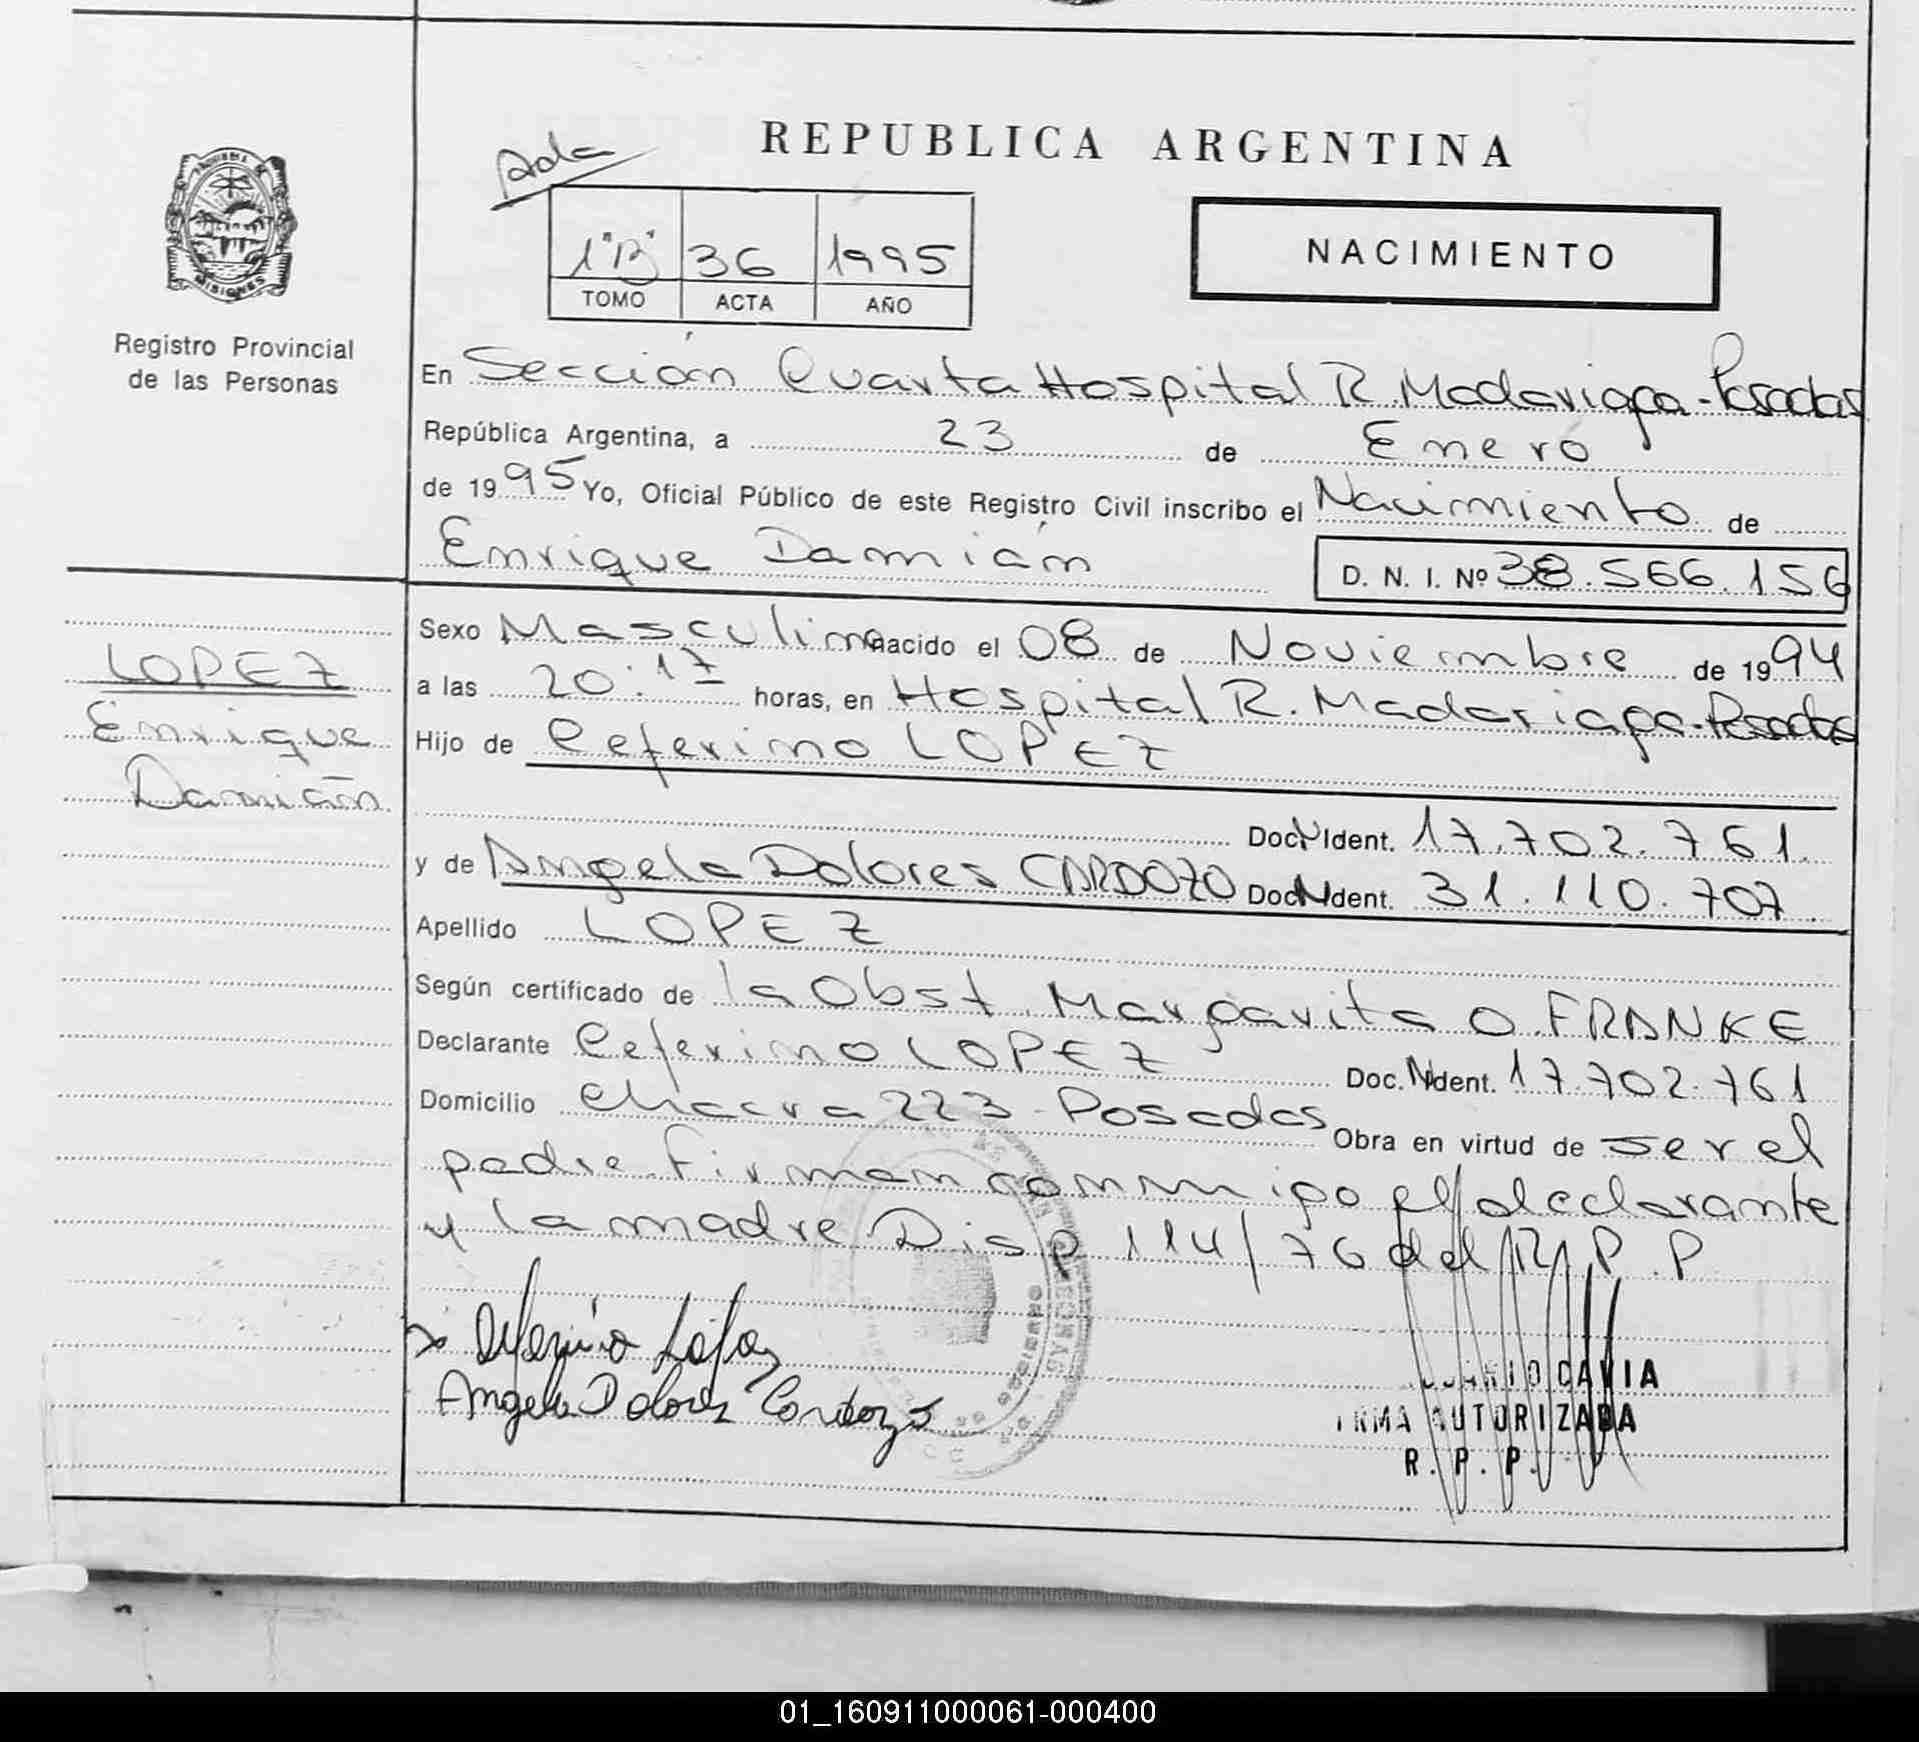 REPUBLICA ARGENTINA
1"B" 36 1995
TOMO ACTA AÑO
NACIMIENTO
MISIONES
Registro Provincial
de las Personas
En Sección Cuarta Hospital R. Madariaga - Posadas
República Argentina, a 23 de Enero
de 1995 Yo, Oficial Público de este Registro Civil inscribo el Nacimiento de
Enrique Damián
D. N. I. Nº 38.566.156
LOPEZ
Enrique
Damián
Sexo Masculino nacido el 08 de Noviembre de 1994
a las 20:17 horas, en Hospital R. Madariaga - Posadas
Hijo de Ceferino LOPEZ
Doc. N Ident. 17.702.761.
y de Angela Dolores CARDOZO Doc. N Ident. 31.110.707
Apellido LOPEZ
Según certificado de la Obst. Margarita O. FRANKE
Declarante Ceferino LOPEZ Doc. N Ident. 17.702.761
Domicilio chacra 223 - Posadas Obra en virtud de ser el
padre. Firman conmigo el declarante
y la madre Disp 114/76 del R.P.P
Ceferino López
Angela Dolores Cardozo
CAVIA
FIRMA AUTORIZADA
R. P. P.
01_160911000061-000400